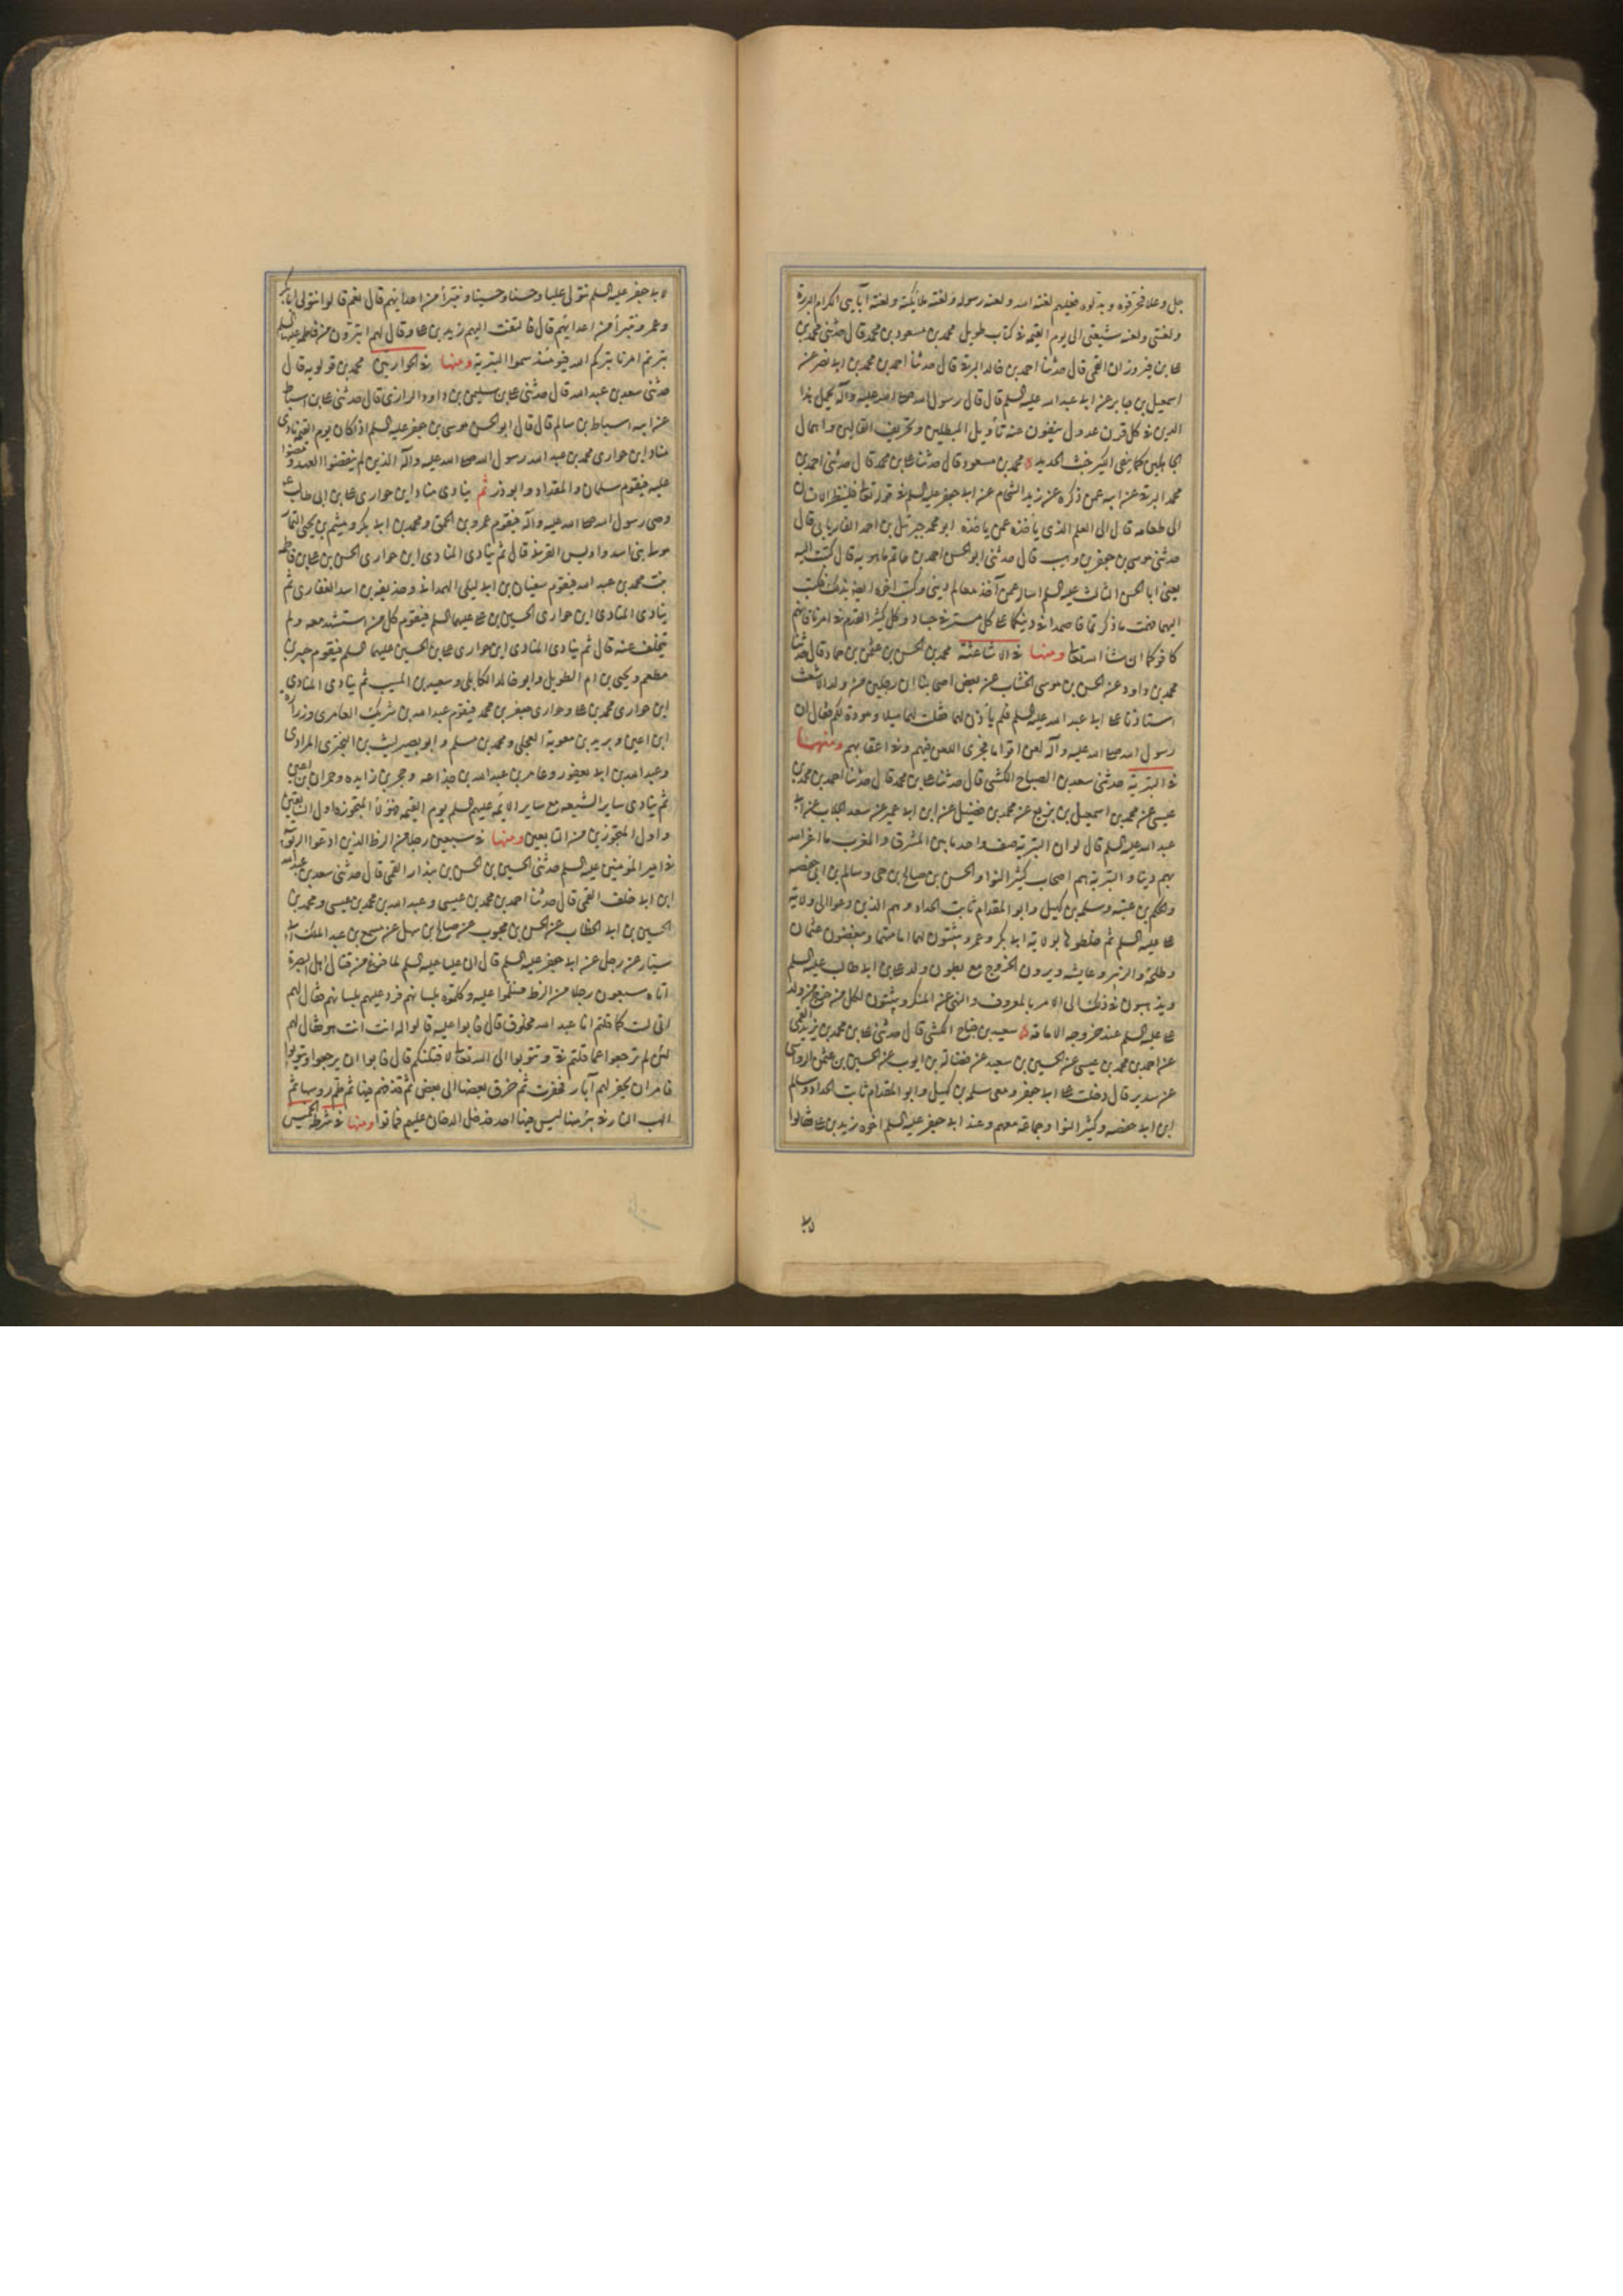 جل وعلا فحرفوه وبدلوه فعليهم لعنة الله ولعنة رسوله ولعنة ملائكته ولعنة آبايى الكرام البررة
ولعنتى ولعنة شيعتى الى يوم القيمة فى كتاب طويل محمد بن مسعود بن محمد قال حدثنى محمد بن
على بن فيروزان القمى قال حدثنا احمد بن خالد البرقى قال حدثنا احمد بن محمد بن ابى نصر عن
اسمعيل بن جابر عن ابى عبد الله عليه السلم قال قال رسول الله صلى الله عليه وآله يحمل هذا
الدين فى كل قرن عدول ينفون عنه تأويل المبطلين وتحريف الغالين وانتحال
الجاهلين كما ينفى الكير خبث الحديد محمد بن مسعود قال حدثنا على بن محمد قال حدثنى احمد بن
محمد البرقى عن ابيه عمن ذكره عن زيد الشحام عن ابى جعفر عليه السلم فى قوله تعالى فلينظر الانسان
الى طعامه قال الى العلم الذى يأخذه عمن ياخذه ابو محمد جبرئيل بن احمد الفاريابى قال
حدثنى موسى بن جعفر بن وهب قال حدثنى ابو الحسن احمد بن حاتم ماهويه قال كتبت اليه
يعنى ابا الحسن الثالث عليه السلم اساله عمن آخذ معالم دينى وكتب اخوه ايضا بذلك فكتب
اليهما فهمت ما ذكرتما فاصمدا فى دينكما على كل مسن فى حبنا وكل كثير القدم فى امرنا فانهم
كافوكما ان شا الله تعالى ومنها فى الاشاعثة محمد بن الحسن بن عثمن بن حماد قال حدثنا
محمد بن داود عن الحسن بن موسى الخشاب عن بعض اصحابنا ان رجلين من ولد الاشعث
استاذنا على ابى عبد الله عليه السلم فلم يأذن لهما فقلت لهما ميلا ومودة لكم فقال ان
رسول الله صلى الله عليه وآله لعن اقواما فجرى اللعن فيهم وفى اعقابهم ومنها
فى البترية حدثنى سعد بن الصباح الكشى قال حدثنا على بن محمد قال حدثنا احمد بن محمد بن
عيسى عن محمد بن اسمعيل بن بزيع عن محمد بن فضيل عن ابن ابى عمير عن سعد الجلاب عن ابى
عبد الله عليه السلم قال لو ان البترية صف واحد ما بين المشرق والمغرب ما اعز الله
بهم دينا والبترية هم اصحاب كثير النوا والحسن بن صالح بن حى وسالم بن ابى حفصه
والحكم بن عتبه وسلمه بن كهيل وابو المقدام ثابت الحداد وهم الذين دعوا الى ولاية
على عليه السلم ثم خلطوها بولاية ابى بكر وعمر ويثبتون لهما امامتهما ويبغضون عثمان
وطلحة والزبير وعايشه ويرون الخروج مع بطون ولد على بن ابى طالب عليه السلم
ويذهبون فى ذلك الى الامر بالمعروف والنهى عن المنكر ويثبتون لكل من خرج من ولد
على عليه السلم عند خروجه الامامة سعيد بن جناح الكشى قال حدثنى على بن محمد بن يزيد القمى
عن احمد بن محمد بن عيسى عن الحسين بن سعيد عن فضالة بن ايوب عن الحسين بن عثمن الرواسى
عن سدير قال دخلت على ابى جعفر ومعى سلمه بن كهيل وابو المقدام ثابت الحداد وسالم
ابن ابى حفصه وكثير النوا وجماعة معهم وعند ابى جعفر عليه السلم اخوه زيد بن على فقالوا
لابى جعفر عليه السلم نتولى عليا وحسنا وحسينا ونتبرأ من اعدائهم قال نعم قالوا نتولى ابابكر
وعمر ونتبرأ من اعدائهم قال فالتفت اليهم زيد بن على وقال لهم اتبرؤن من فاطمه عليها السلم
بترتم امرنا بتركم الله فيومئذ سموا البترية ومنها فى الحواريين محمد بن قولويه قال
حدثنى سعد بن عبد الله قال حدثنى على بن سليمن بن داود الرازى قال حدثنى على بن اسباط
عن ابيه اسباط بن سالم قال قال ابو الحسن موسى بن جعفر عليه السلم اذا كان يوم القيمة نادى
مناد اين حوارى محمد بن عبد الله رسول الله صلى الله عليه وآله الذين لم ينقضوا العهد ومضوا
عليه فيقوم سلمان والمقداد وابو ذر ثم ينادى مناد اين حوارى على بن ابى طالب ع
وصى رسول الله صلى الله عليه وآله فيقوم عمرو بن الحمق ومحمد بن ابى بكر وميثم بن يحيى التمار
مولى بنى اسد واويس القرنى قال ثم ينادى المنادى اين حوارى الحسن بن على بن فاطمه
بنت محمد بن عبد الله فيقوم سفيان بن ابى ليلى الهمدانى وحذيفه بن اسد الغفارى ثم
ينادى المنادى اين حوارى الحسين بن على عليهما السلم فيقوم كل من استشهد معه ولم
يتخلف عنه قال ثم ينادى المنادى اين حوارى على بن الحسين عليهما السلم فيقوم جبير بن
مطعم ويحيى بن ام الطويل وابو خالد الكابلى وسعيد بن المسيب ثم ينادى المنادى
اين حوارى محمد بن على وحوارى جعفر بن محمد فيقوم عبد الله بن شريك العامرى وزرارة
ابن اعين وبريد بن معوية العجلى ومحمد بن مسلم وابو بصير ليث بن البخترى المرادى
وعبد الله بن ابى يعفور وعامر بن عبد الله بن جذاعه وحجر بن زايده وحمران بن اعين
ثم ينادى ساير الشيعه مع ساير الائمة عليهم السلم يوم القيمه فهؤلاء المتحوره اول السابقين
واول المتحورين من التابعين ومنها فى سبعين رجلا من الزط الذين ادعوا الربوبية
فى امير المؤمنين عليه السلم حدثنى الحسين بن الحسن بن بندار القمى قال حدثنى سعد بن عبد الله
ابن ابى خلف القمى قال حدثنا احمد بن محمد بن عيسى وعبد الله بن محمد بن عيسى ومحمد بن
الحسين بن ابى الخطاب عن الحسن بن محبوب عن صالح بن سهل عن مسمع بن عبد الملك ابى
سيار عن رجل عن ابى جعفر عليه السلم قال ان عليا عليه السلم لما فرغ من قتال اهل البصرة
اتاه سبعون رجلا من الزط فسلموا عليه وكلموه بلسانهم فرد عليهم بلسانهم فقال لهم
انى لست كما قلتم انا عبد الله مخلوق قال فابوا عليه قالوا له انت انت هو فقال لهم
لئن لم ترجعوا عما قلتم فى وتتوبوا الى الله تعالى لاقتلنكم قال فابوا ان يرجعوا ويتوبوا
فامر ان يحفر لهم آبار فحفرت ثم خرق بعضها الى بعض ثم قذفهم فيها ثم طم روسها ثم
الهب النار فى بئر منها ليس فيها احد فدخل الدخان عليهم فماتوا ومنها فى شرطة الخميس